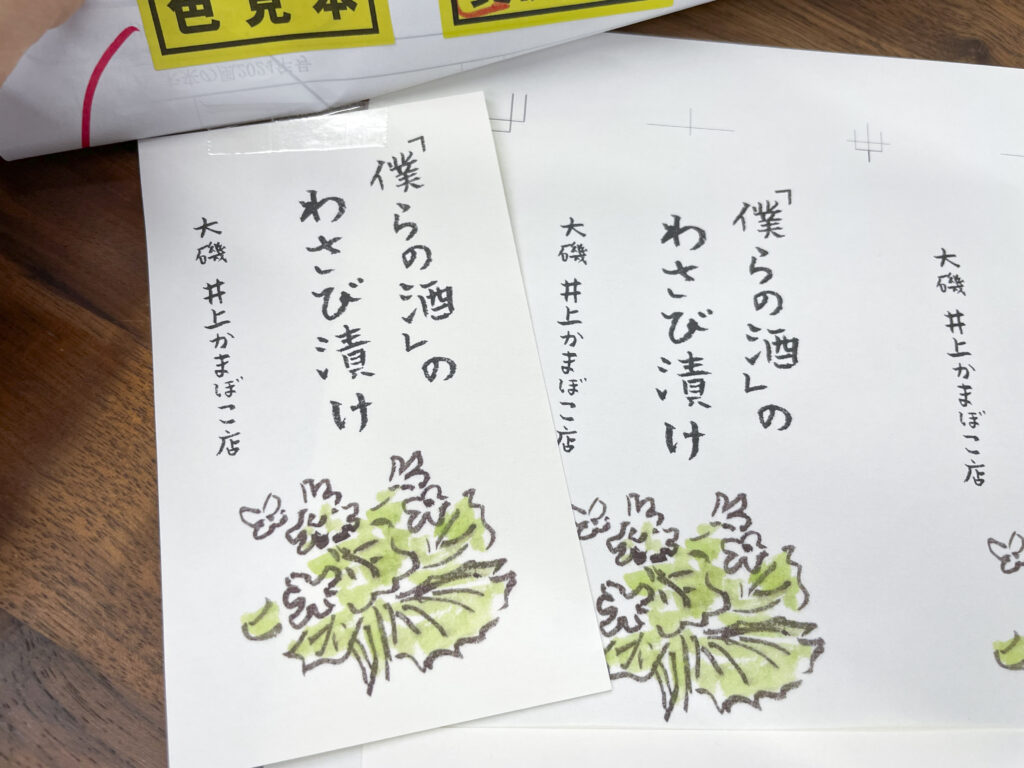 色見本
「僕らの酒」の
わさび漬け
大磯 井上かまぼこ店
「僕らの酒」の
わさび漬け
大磯 井上かまぼこ店
大磯 井上かまぼこ店